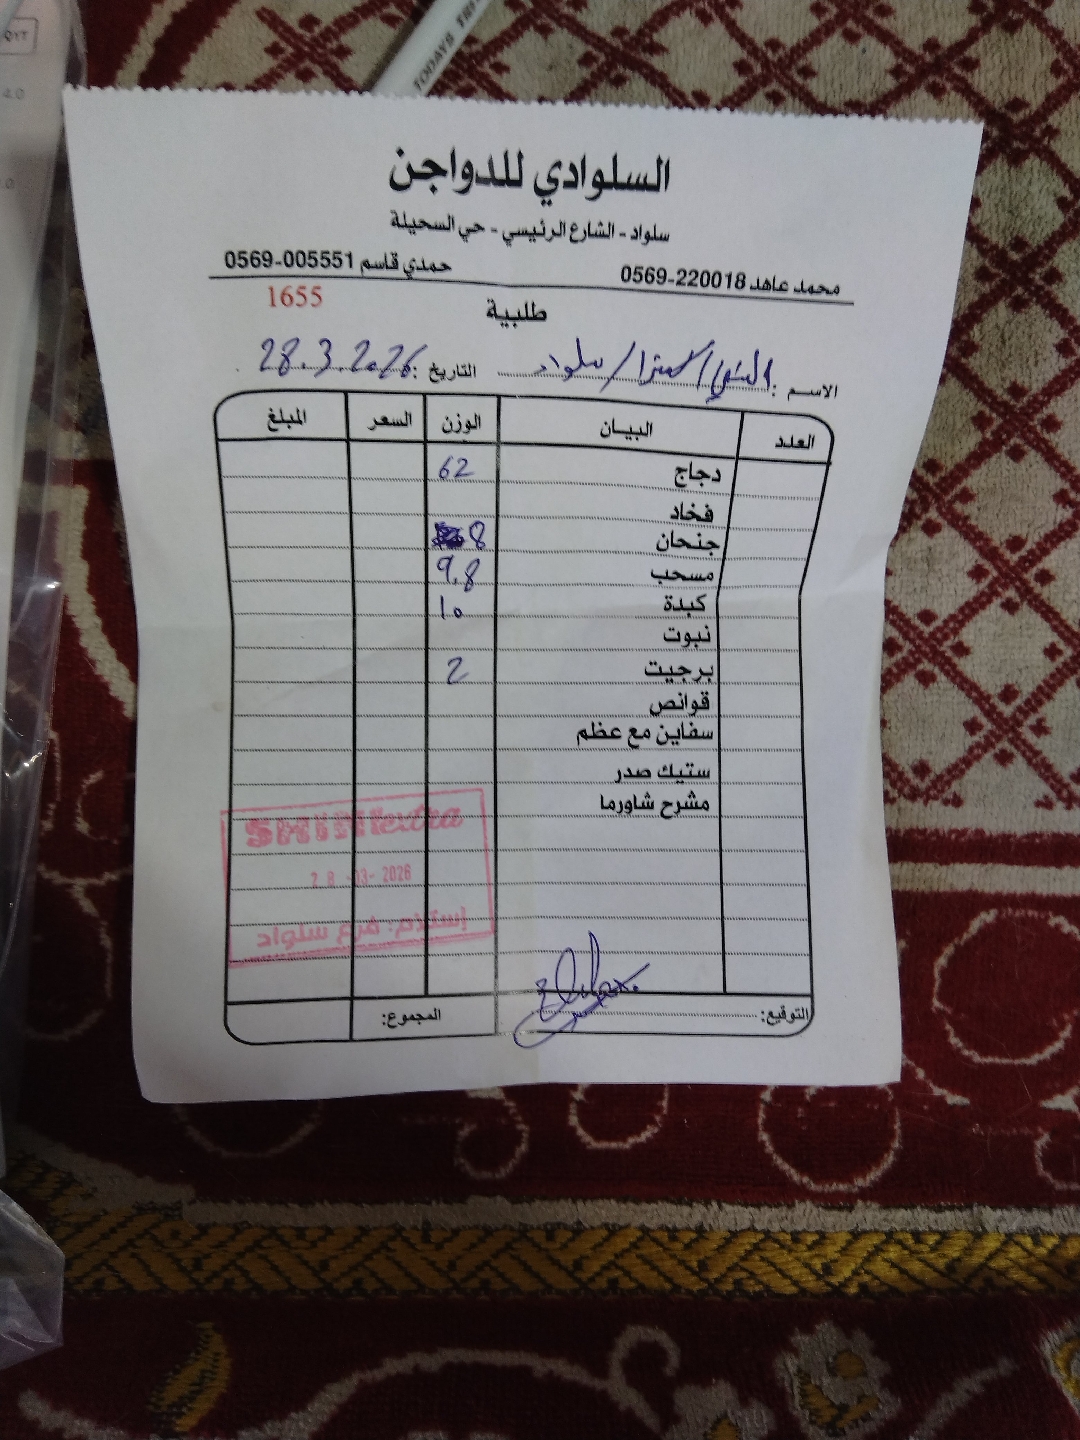 QTY
4.0
TODAYS
السلوادي للدواجن
سلواد - الشارع الرئيسي - حي السحيلة
محمد عاهد 220018-0569 حمدي قاسم 005551-0569
1655
طلبية
الاسم: الشني/اكسترا/سلواد التاريخ: 28.3.2026
العدد البيـان الوزن السعر المبلغ
دجاج 62
فخاد
جنحان 8
مسحب 9.8
كبدة 10
نبوت
برجيت 2
قوانص
سفاين مع عظم
ستيك صدر
مشرح شاورما
SHINIextra
28-03-2026
إستلام: فرع سلواد
التوقيع:
المجموع: